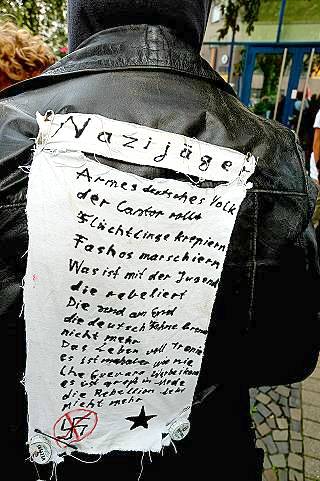 Nazijäger
Armes deutsches Volk
der Castor rollt
Flüchtlinge krepieren
Fashos marschiern
Was ist mit der Jugend
die rebeliert
Die sind am Grund
die deutsch Fahne brennt
nicht mehr
Das Leben voll Tranie
es ist makaber wie nie
Che Guevara Werbeikone
es ist groß in Mode
die Rebellion lebt
nicht mehr